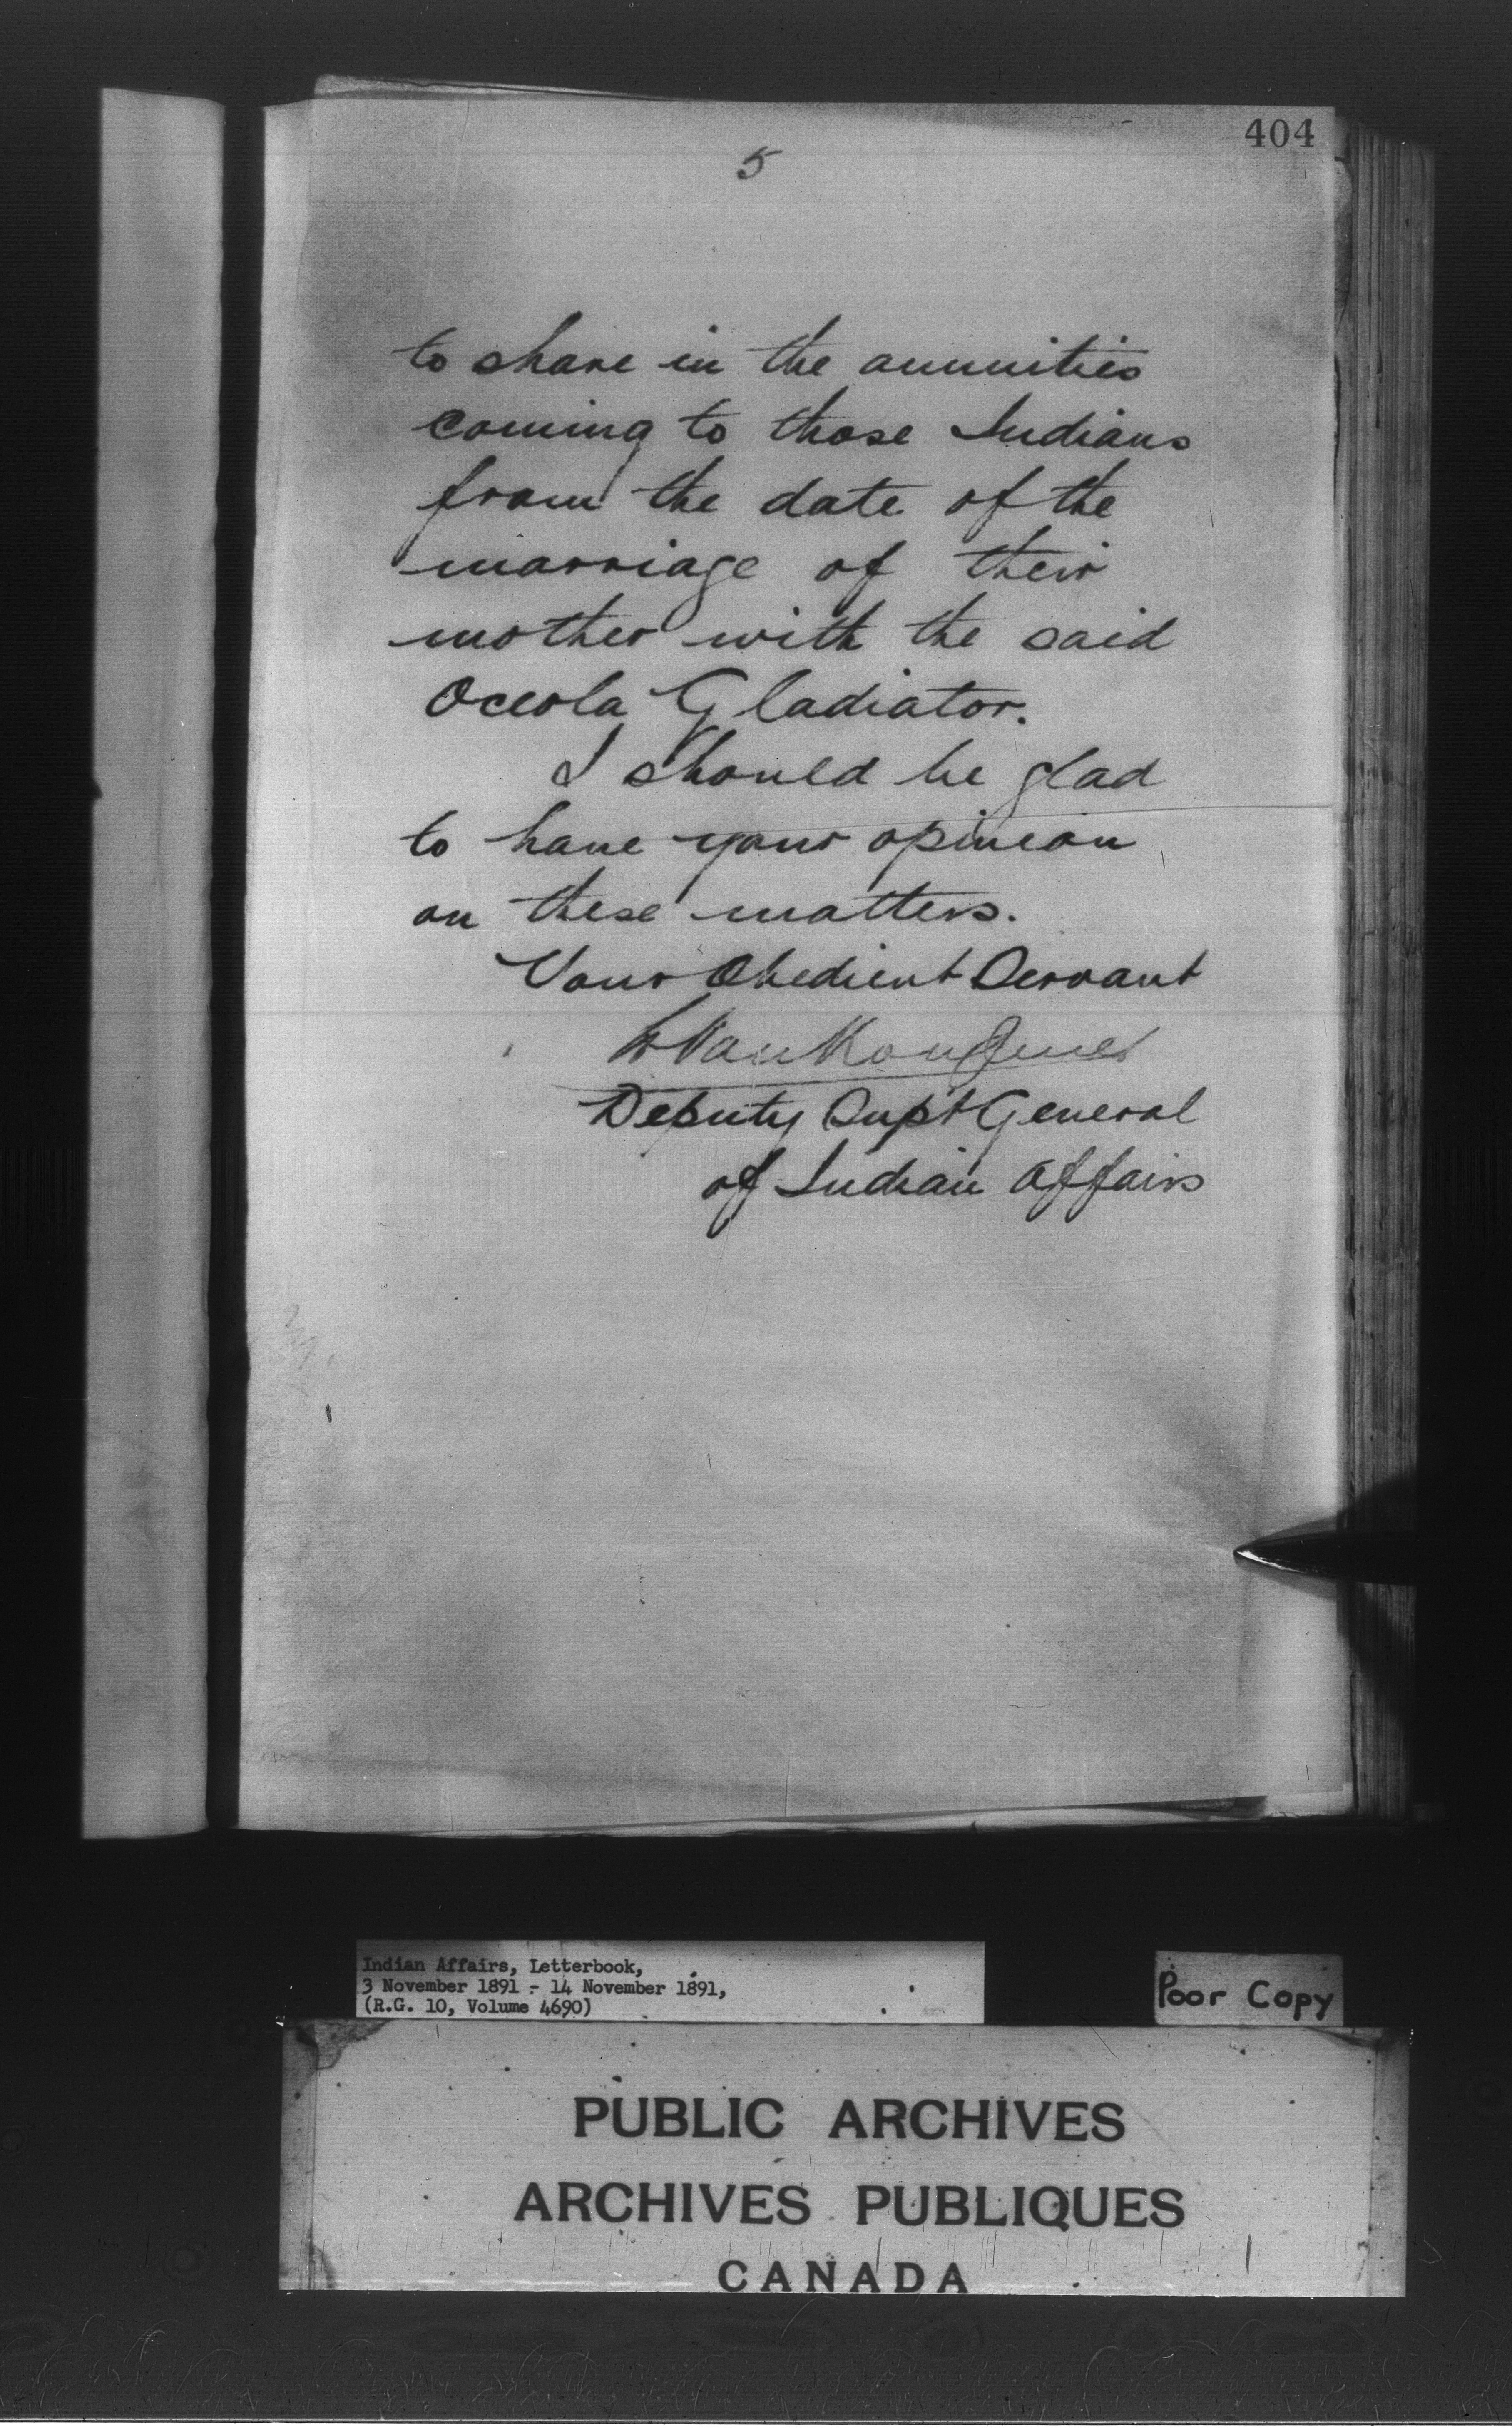 404
5
to share in the annuities
coming to those Indians
from the date of the
marriage of their
mother with the said
Oceola Gladiator.
I should be glad
to have your opinion
on these matters.
Your Obedient Servant
L VanKoughnet
Deputy Supt General
of Indian Affairs
Indian Affairs, Letterbook,
3 November 1891 - 14 November 1891,
(R.G. 10, Volume 4690)
Poor Copy
PUBLIC ARCHIVES
ARCHIVES PUBLIQUES
CANADA